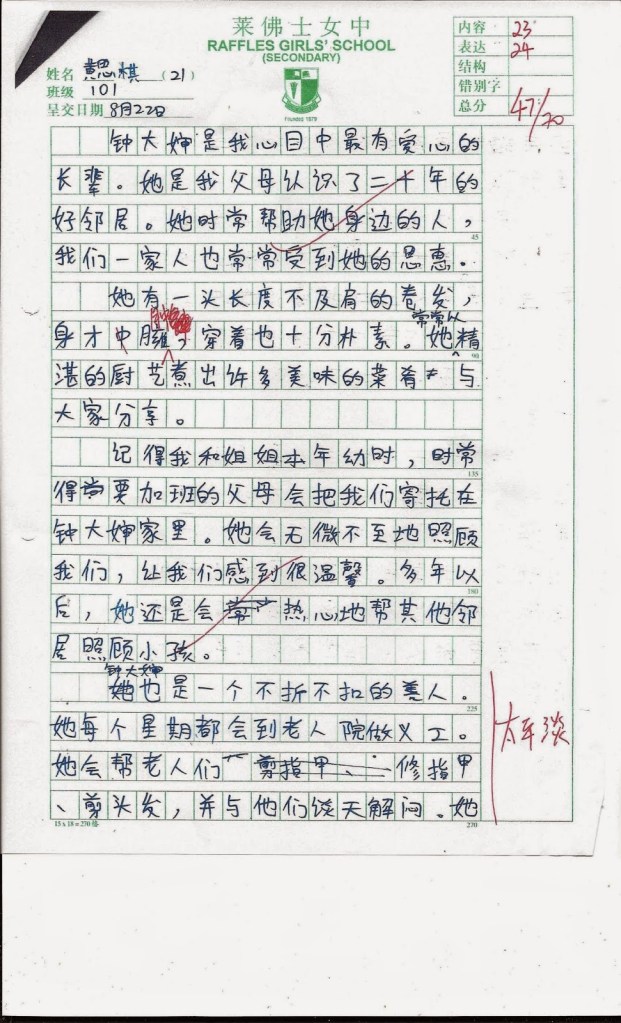 莱佛士女中
RAFFLES GIRLS' SCHOOL
(SECONDARY)
Founded 1879
姓名 黄思棋 (21)
班级 101
呈交日期 8月22日
内容 23
表达 24
结构
错别字
总分 47/70
钟大婶是我心目中最有爱心的
长辈。她是我父母认识了二十年的
好邻居。她时常帮助她身边的人，
45
我们一家人也常常受到她的恩惠。
她有一头长度不及肩的卷发，
常常以
身才中臃，穿着也十分朴素。她精
90
湛的厨艺煮出许多美味的菜肴与
大家分享。
记得我和姐姐本年幼时，时常
135
得要加班的父母会把我们寄托在
钟大婶家里。她会无微不至地照顾
我们，让我们感到很温馨。多年以
180
后，她还是会热心地帮其他邻
居照顾小孩。
钟大婶
她也是一个不折不扣的善人。
225
她每个星期都会到老人院做义工。
太平淡
她会帮老人们剪指甲、修指甲
、剪头发，并与他们谈天解闷。她
15 x 18 = 270格
270